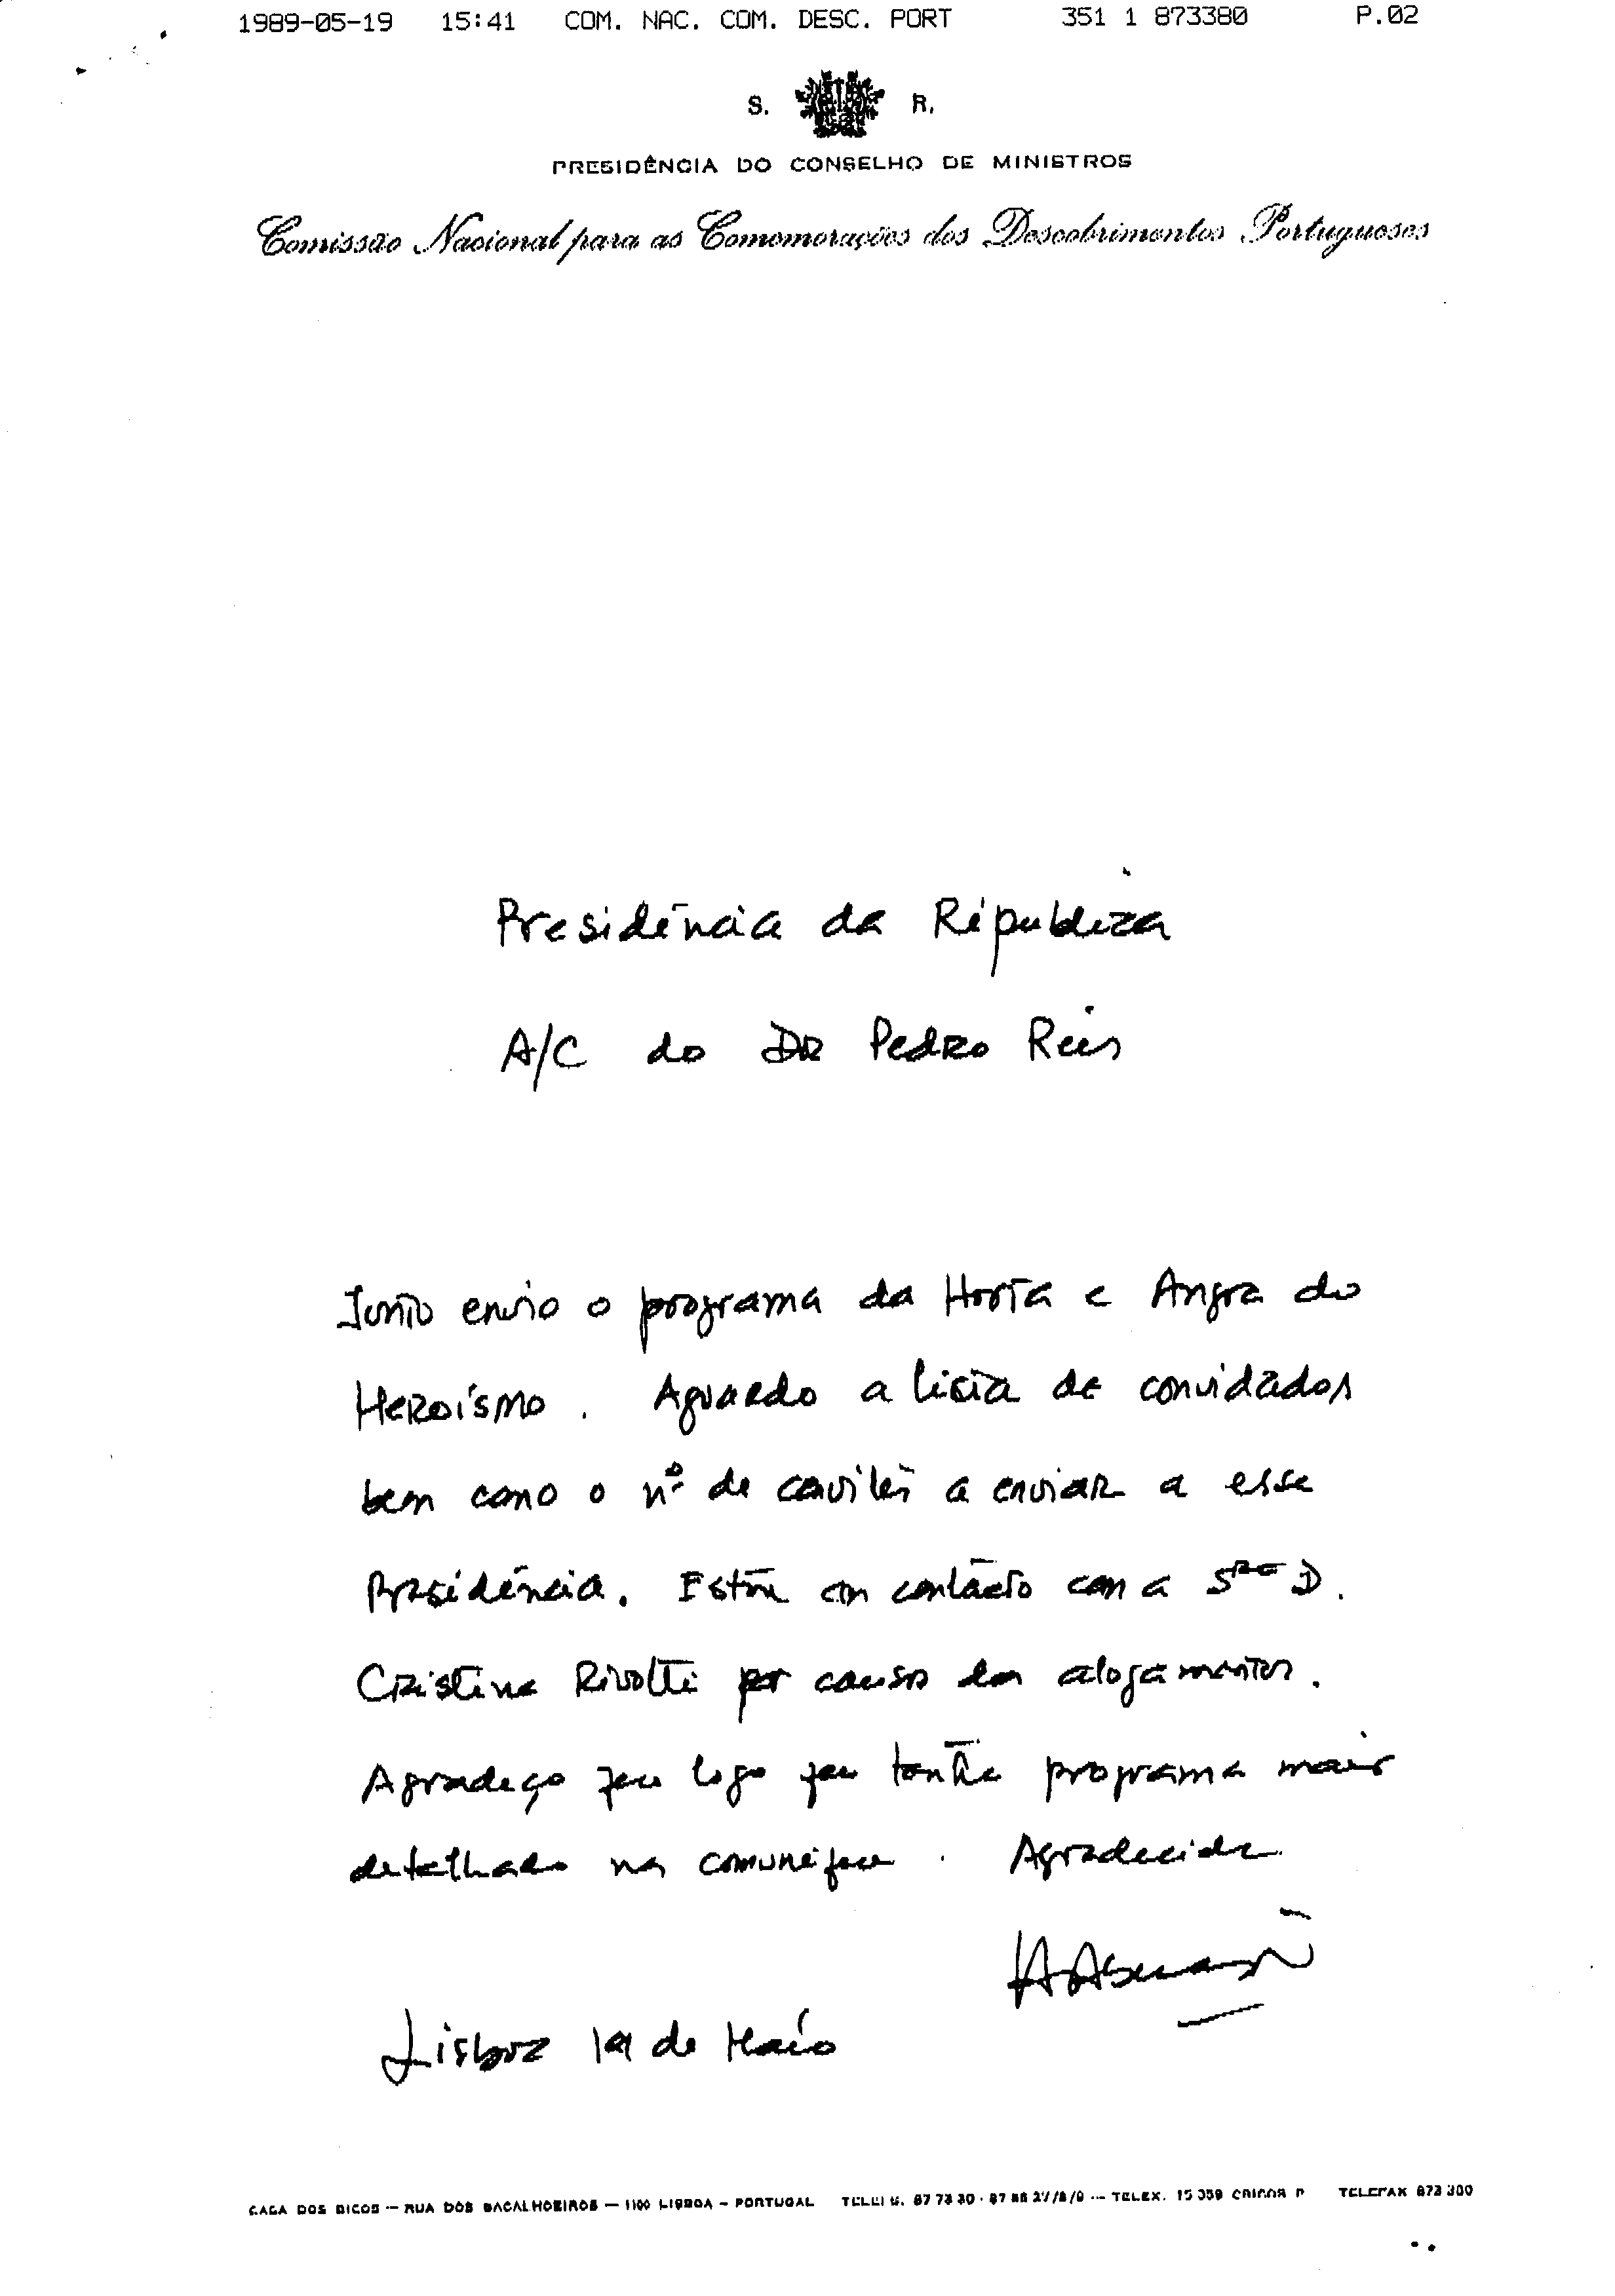 1989-05-19 15:41 COM. NAC. COM. DESC. PORT 351 1 873380 P.02
S. R.
PRESIDÊNCIA DO CONSELHO DE MINISTROS
Comissão Nacional para as Comemorações dos Descobrimentos Portugueses
Presidência da República
A/C do DR Pedro Reis
Junto envio o programa da Horta e Angra do
Heroísmo. Aguardo a lista de convidados
bem como o nº de convites a enviar a esse
Presidência. Estou em contacto com a Sra D.
Cristina por causa dos alojamentos.
Agradeço que logo que tenha programa mais
detalhado nos comunique. Agradecida
Lisboa 19 de Maio
CASA DOS BICOS — RUA DOS BACALHOEIROS — 1100 LISBOA — PORTUGAL TELEX. 15 359 TELEFAX 873 380